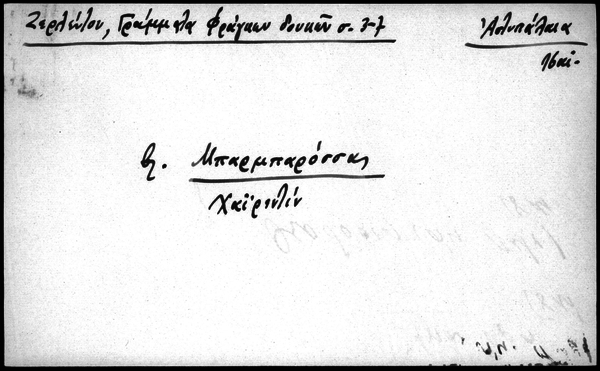 Ζερλέντου, Γράμματα Φράγκων δουκῶν σ. 3-7
Ἀστυπάλαια
16 αἰ.
βλ. Μπαρμπαρόσσας
Χαϊρεντίν